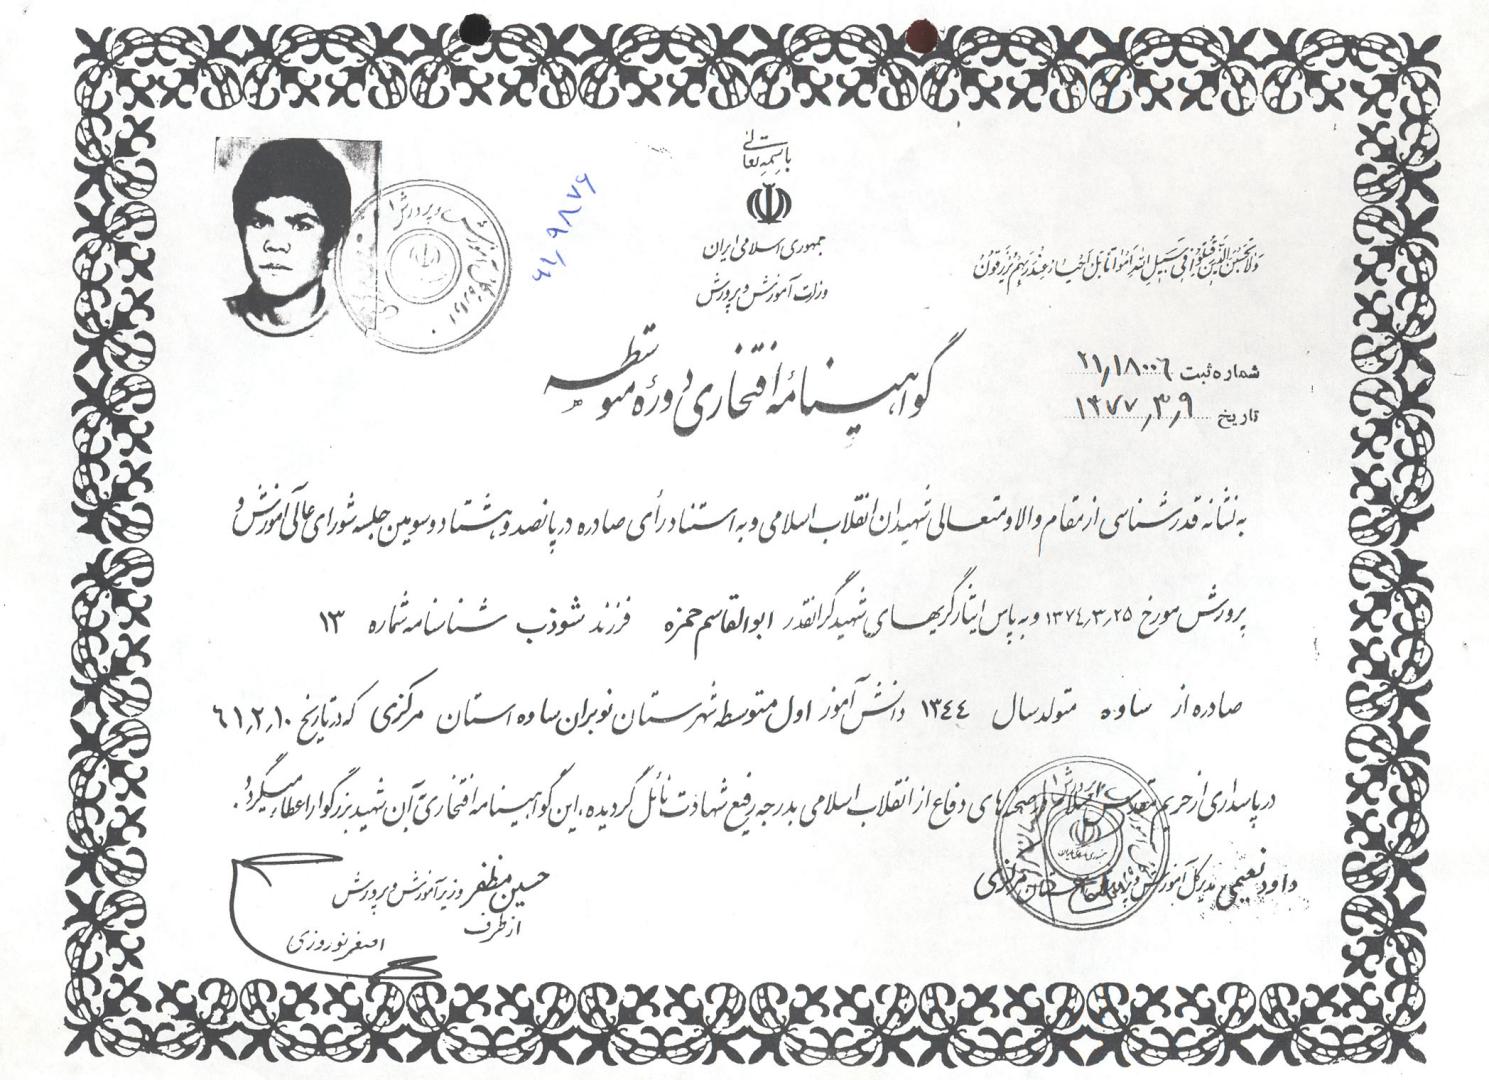 باسمه تعالی
جمهوری اسلامی ایران
وزارت آموزش و پرورش
ولا تحسبن الذین قتلوا فی سبیل الله امواتا بل احیاء عند ربهم یرزقون
شماره ثبت ۲۱٫۱۸۰۰۶
تاریخ ۱۳۷۷٫۳٫۹
گواهینامهٔ افتخاری دورهٔ متوسطه
به نشانه قدرشناسی از مقام والا و متعالی شهیدان انقلاب اسلامی و به استناد رأی صادره در پانصد و هشتاد و سومین جلسه شورای عالی آموزش و
پرورش مورخ ۱۳۷٤٫۳٫۲۵ و به پاس ایثارگریهای شهید گرانقدر ابوالقاسم حمزه فرزند شوذب شناسنامه شماره ۱۳
صادره از ساوه متولد سال ۱۳٤٤ دانش آموز اول متوسطه شهرستان نوبران ساوه استان مرکزی که در تاریخ ٦۱٫۲٫۱۰
در پاسداری از حریم مقدس اسلام و صحنه های دفاع از انقلاب اسلامی بدرجه رفیع شهادت نائل گردیده، این گواهینامه افتخاری به آن شهید بزرگوار اعطاء میگردد.
داود نعیمی مدیرکل آموزش و پرورش استان مرکزی
حسین مظفر وزیر آموزش و پرورش
از طرف
اصغر نوروزی